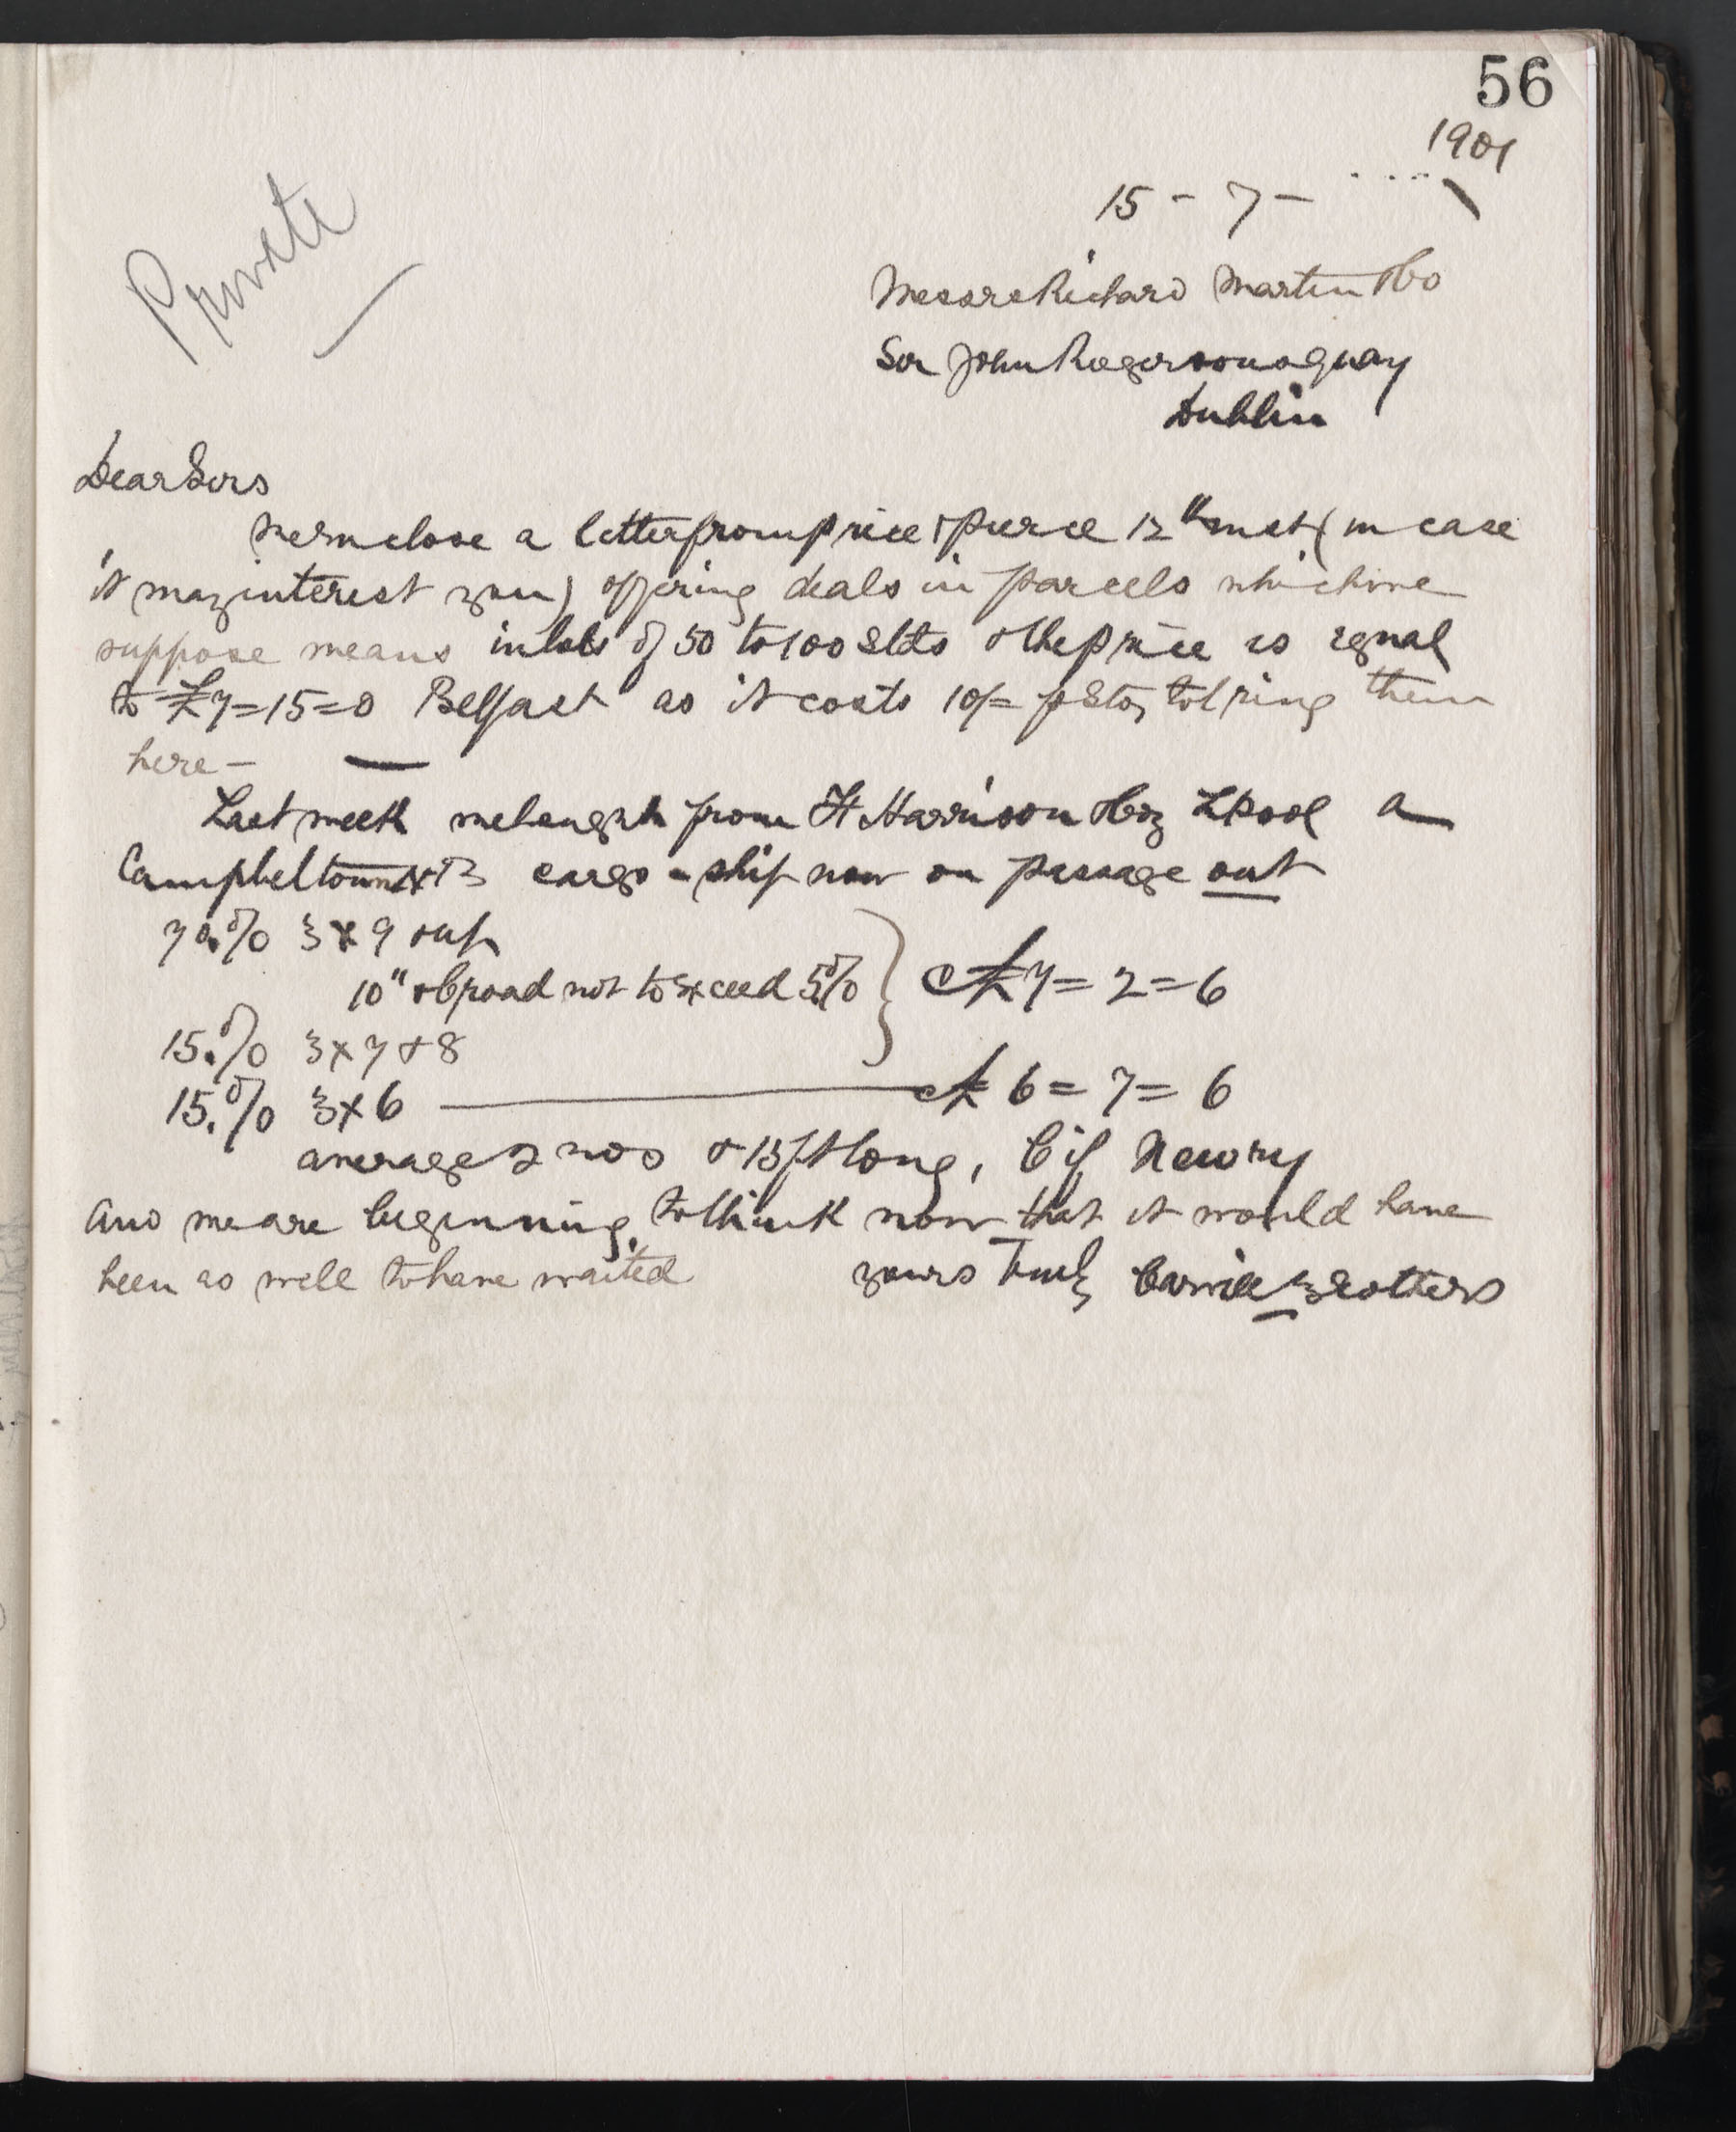 56
1901
15 - 7 -
Private
Messrs Richard Martin & Co
Sir John Rogersons Quay
Dublin
Dear Sirs
We enclose a letter from Price & Pierce 12th inst (in case
it may interest you) offering deals in parcels which we
suppose means in lots of 50 to 100 Stds & the price is equal
to £7=15=0 Belfast as it costs 10/= p Std to bring them
here -
Last week we bought from H Harrison & Coy LPool a
Campbeltown cargo - ship now on passage out
70.% 3 x 9 & up
10" & broad not to exceed 5% } @ £7=2=6
15.% 3 x 7 & 8
15.% 3 x 6 @ £6=7=6
average 2 nos & 13 ft long, Cif Newry
and we are beginning to think now that it would have
been as well to have waited yours truly Carvill Brothers